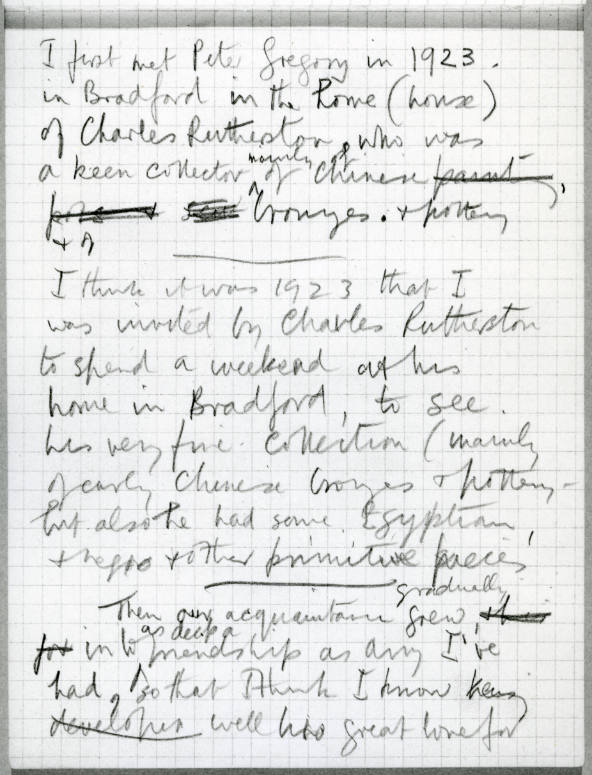 I first met Peter Gregory in 1923.
in Bradford in the Home (house)
of Charles Rutherston, who was
mainly of
a keen collector of Chinese paint,
bronzes. + pottery
+ A
I think it was 1923 that I
was invited by Charles Rutherston
to spend a weekend at his
home in Bradford, to see.
his very fine collection (mainly
of early Chinese bronzes + pottery -
but also he had some Egyptian,
+ negro + other primitive pieces
gradually
Then our acquaintance grew, this
as deep a
for into friendship as any I've
had, so that I think I know
developed well his great love for